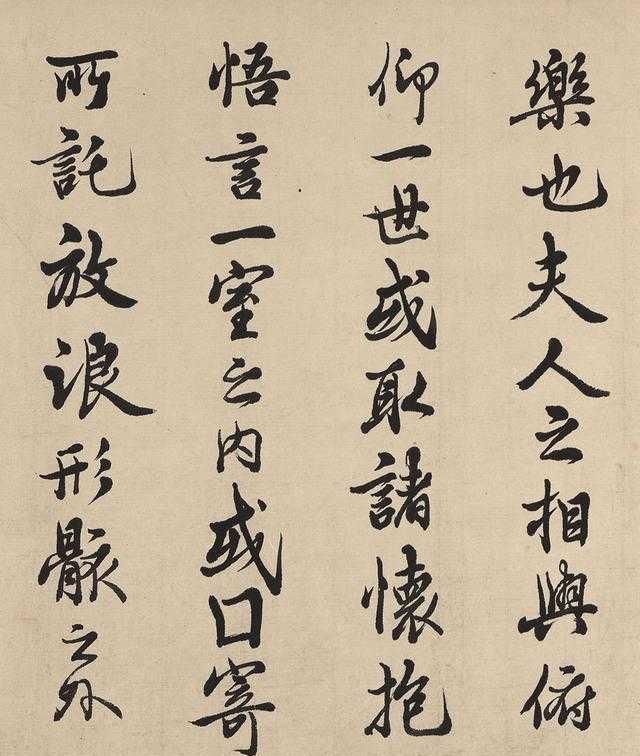 樂也夫人之相與俯
仰一世或取諸懷抱
悟言一室之内或口寄
所託放浪形骸之外